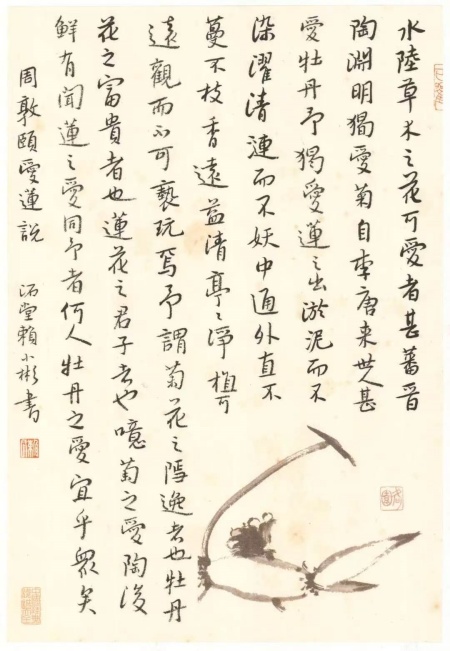 水陸草木之花可愛者甚蕃晉
陶淵明獨愛菊自李唐来世人甚
愛牡丹予獨愛蓮之出淤泥而不
染濯清漣而不妖中通外直不
蔓不枝香遠益清亭〻淨植可
遠觀而不可褻玩焉予謂菊花之隱逸者也牡丹
花之富貴者也蓮花之君子者也噫菊之愛陶後
鮮有聞蓮之愛同予者何人牡丹之愛宜乎衆矣
周敦頤愛蓮説
堂賴小彬書